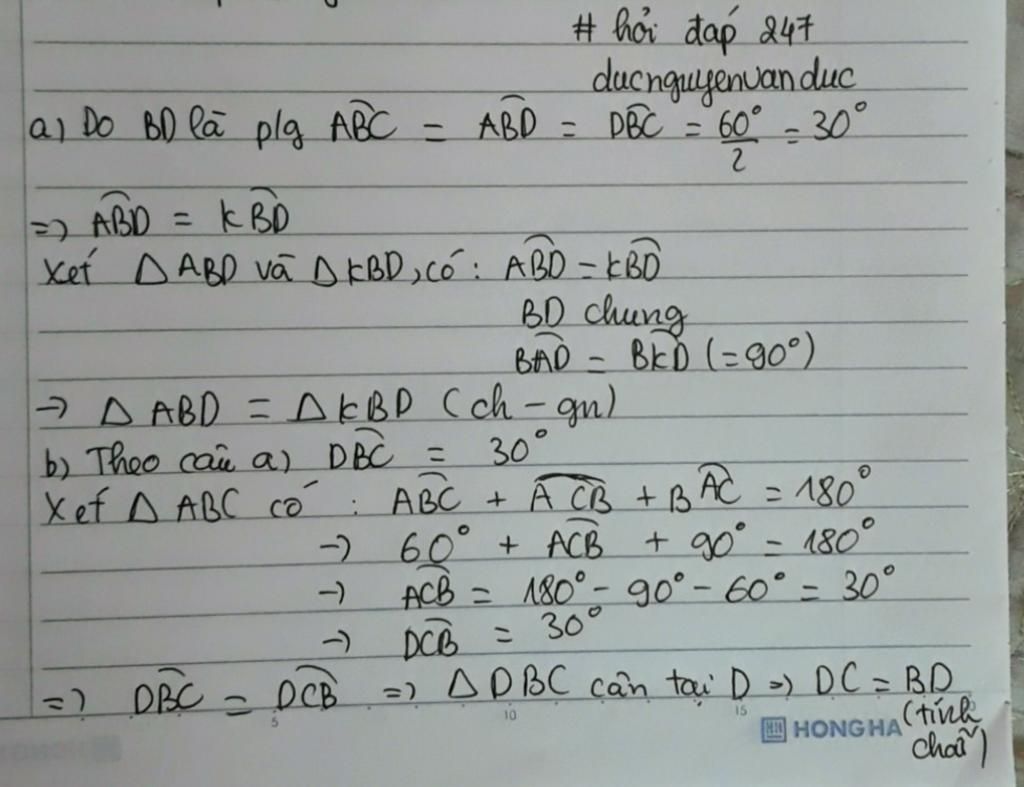 # hỏi đáp 247
ducnguyenvanduc
a) Do BD là p/g ABC = ABD = DBC = 60°/2 = 30°
=> ABD = KBD
Xét Δ ABD và Δ KBD, có: ABD = KBD
BD chung
BAD = BKD (= 90°)
-> Δ ABD = Δ KBD (ch - gn)
b) Theo câu a) DBC = 30°
Xét Δ ABC có : ABC + ACB + BAC = 180°
-> 60° + ACB + 90° = 180°
-> ACB = 180° - 90° - 60° = 30°
-> DCB = 30°
=> DBC = DCB => Δ DBC cân tại D => DC = BD
(tính
chất)
5 10 15
HONG HA